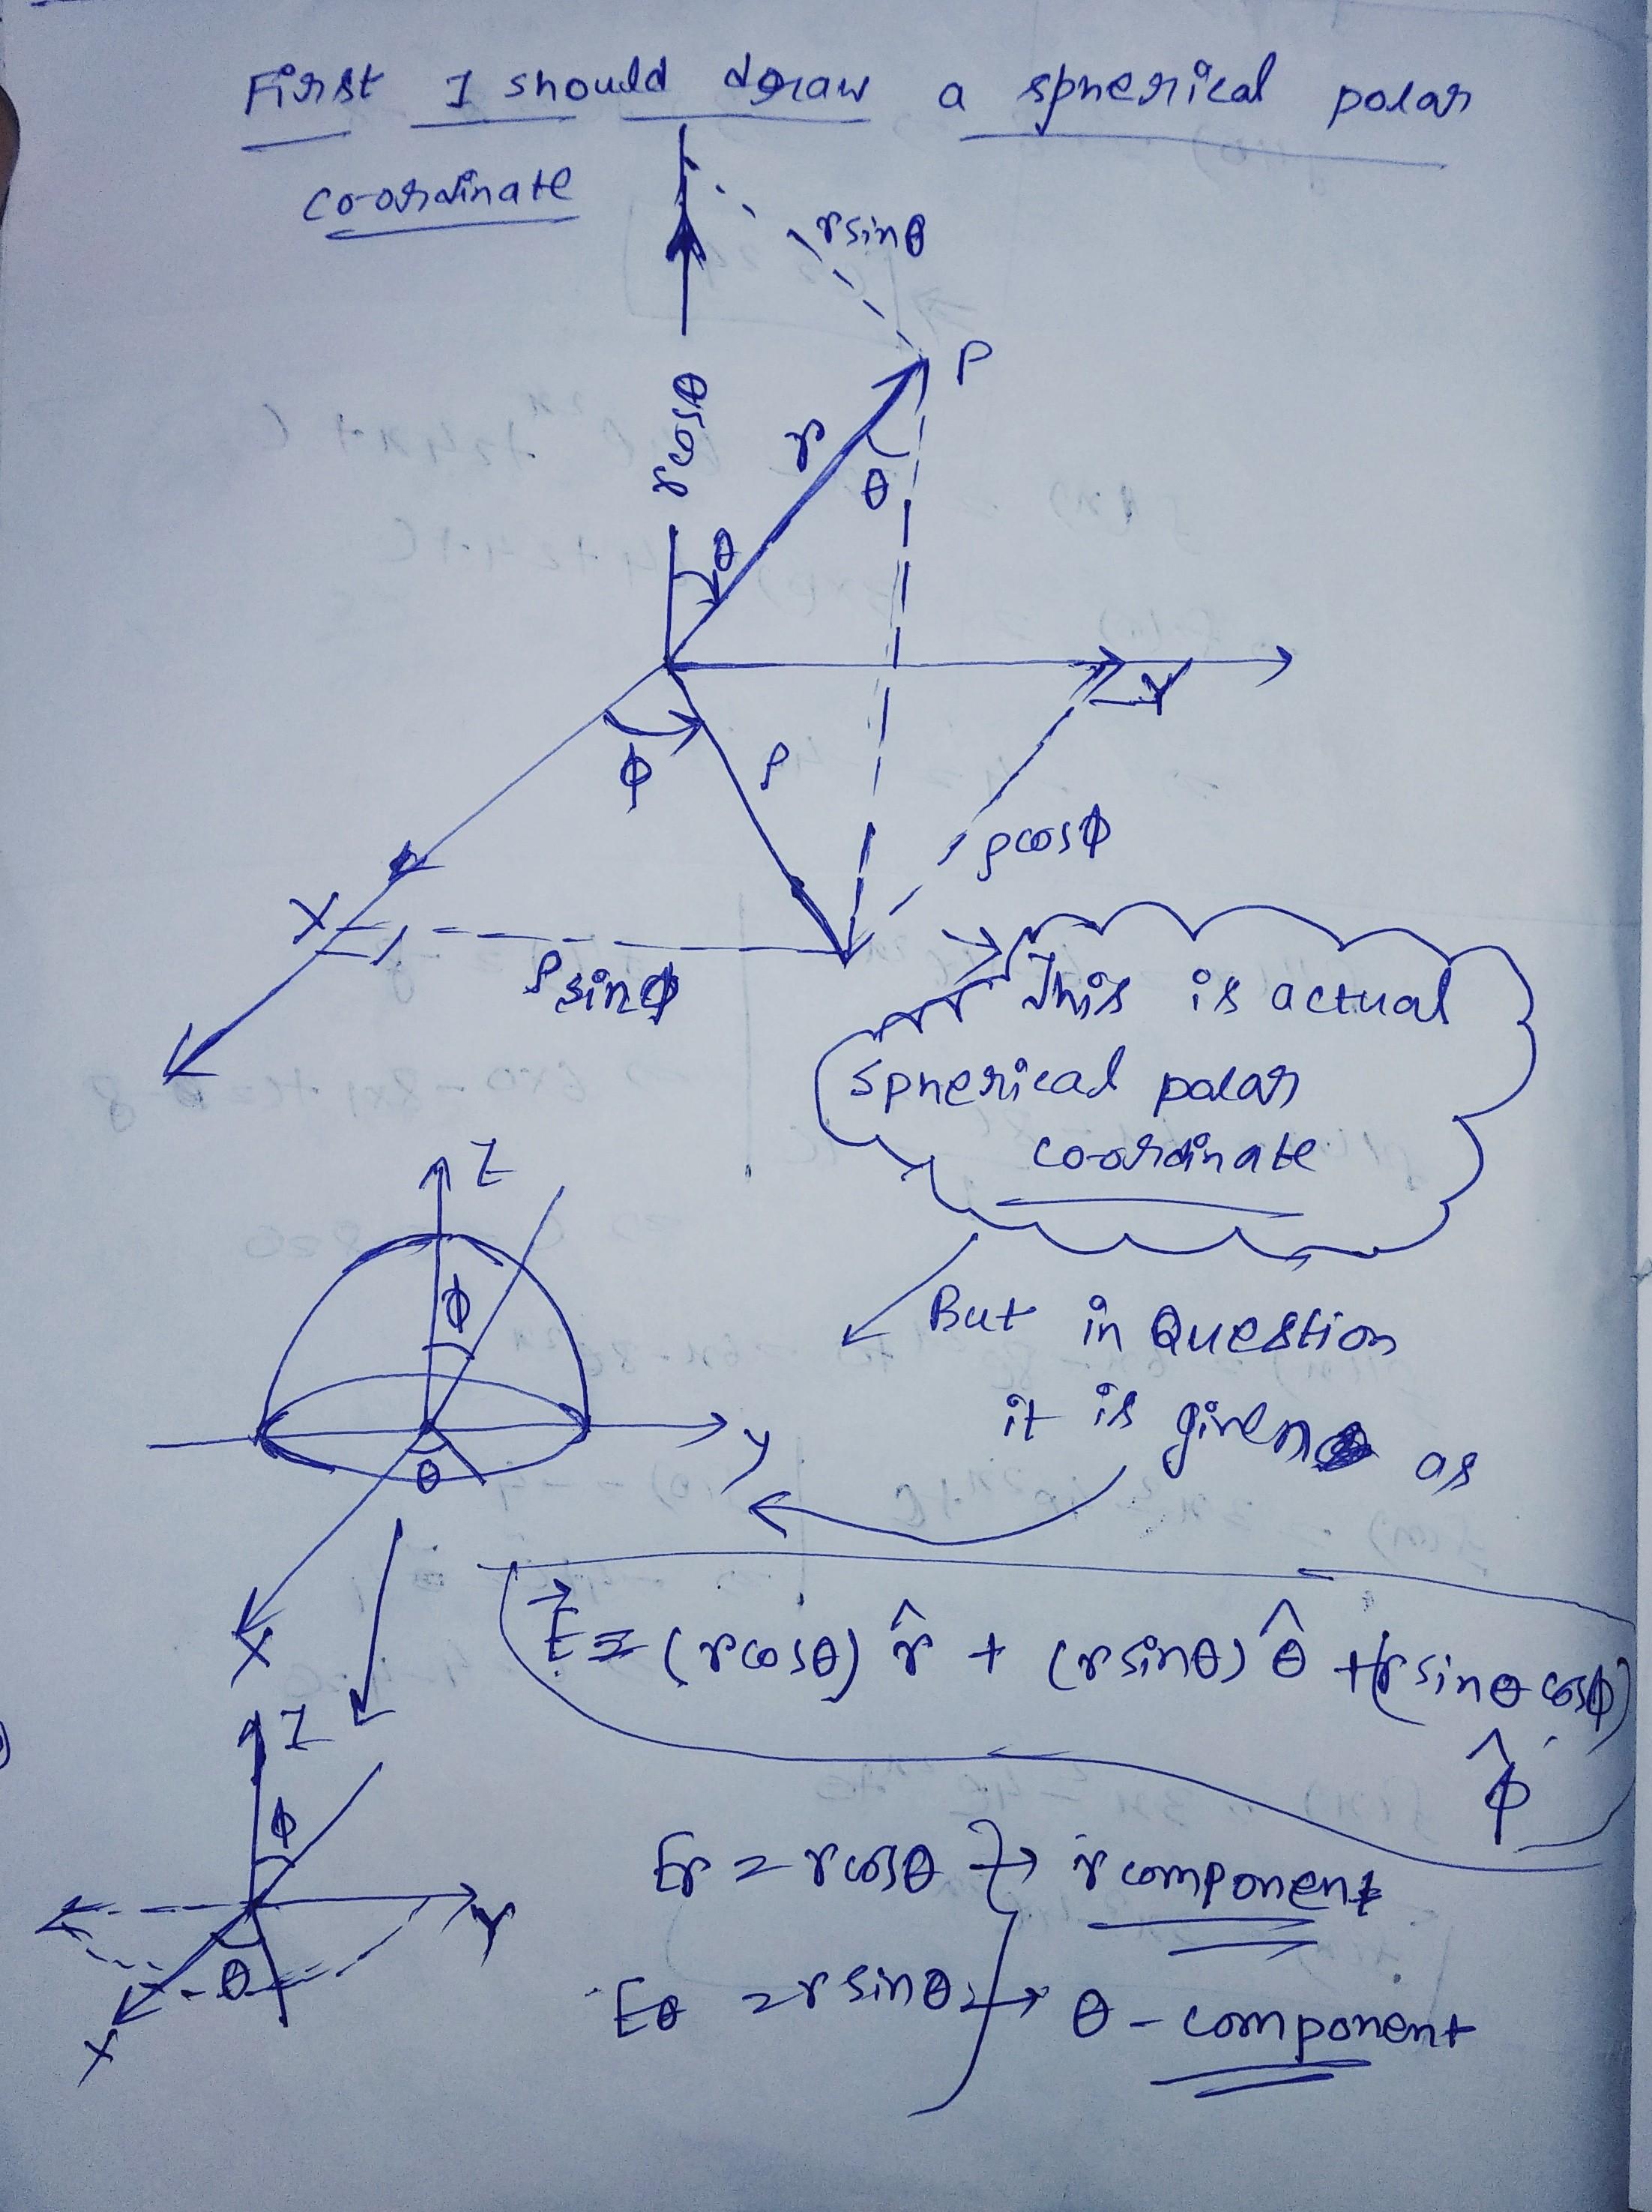 First I should draw a spherical polar
co-ordinate
rsinθ
P
rcosθ
r
θ
θ
Y
ϕ
ρ
ρcosϕ
X
ρsinϕ
This is actual
spherical polar
co-ordinate
Z
ϕ
But in Question
it is given as
y
θ
X
E = (rcosθ) r̂ + (rsinθ) θ̂ + (rsinθcosϕ)
ϕ̂
Z
ϕ
Er = rcosθ → r component
Y
θ
Eθ = rsinθ → θ-component
X